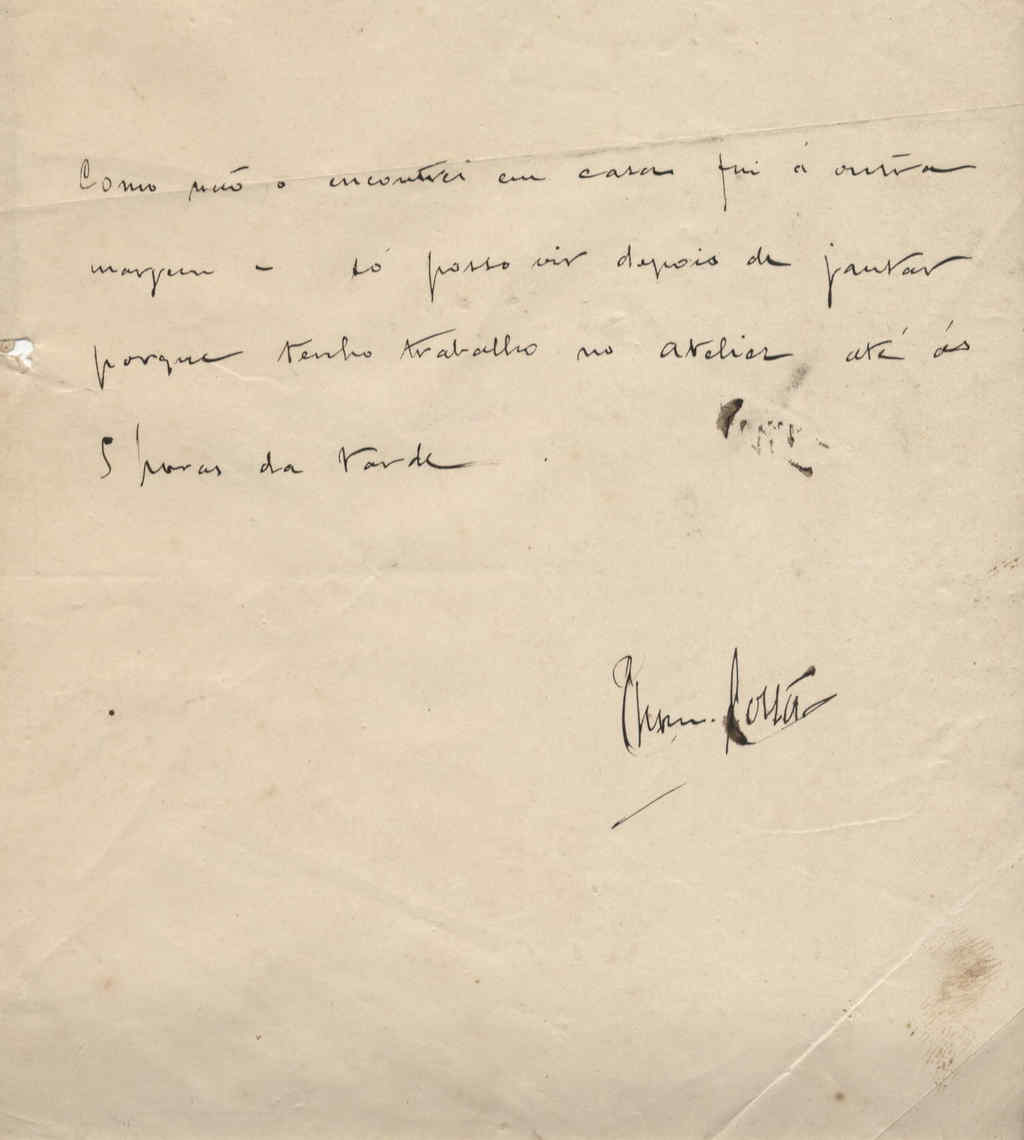 Como não o encontrei em casa fui á outra
margem - só posso vir depois de jantar
porque tenho trabalho no atelier até ás
5 horas da tarde.
Costa